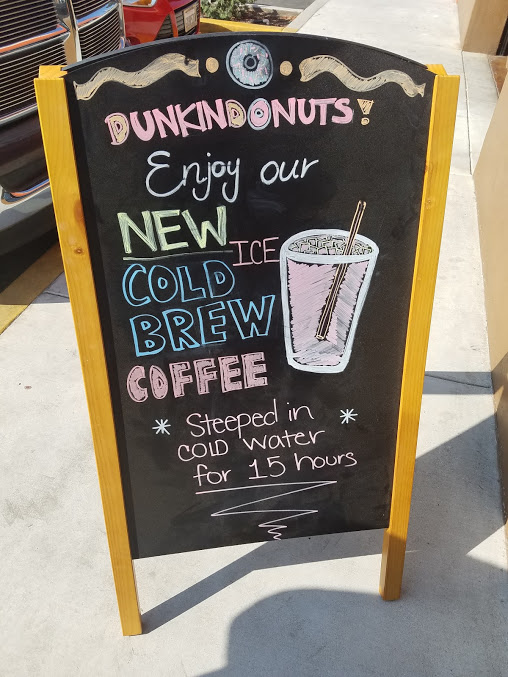 DUNKIN DONUTS!
Enjoy our
NEW ICE
COLD
BREW
COFFEE
* Steeped in *
COLD water
for 15 hours